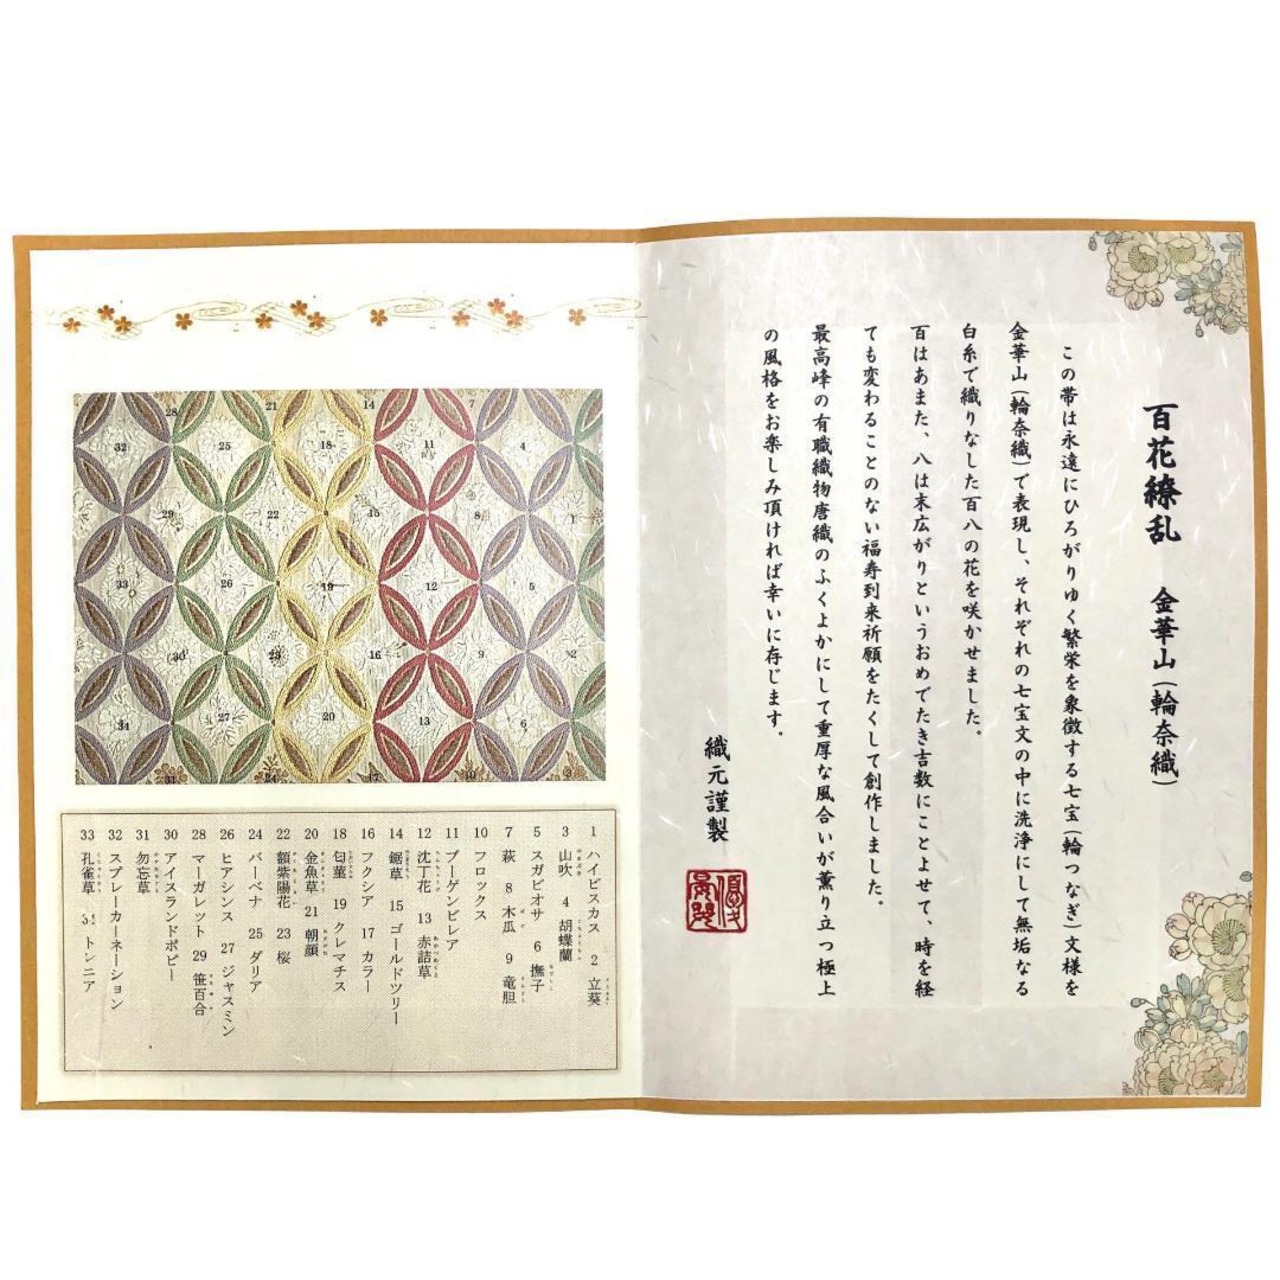 百花繚乱　金華山(輪奈織)
この帯は永遠にひろがりゆく繁栄を象徴する七宝(輪つなぎ)文様を
金華山(輪奈織)で表現し、それぞれの七宝文の中に洗浄にして無垢なる
白糸で織りなした百八の花を咲かせました。
百はあまた、八は末広がりというおめでたき吉数にことよせて、時を経
ても変わることのない福寿到来祈願をたくして創作しました。
最高峰の有職織物唐織のふくよかにして重厚な風合いが薫り立つ極上
の風格をお楽しみ頂ければ幸いに存じます。
織元謹製
28 21 14 7
32 25 18 11 4
29 22 15 8 1
33 26 19 12 5
30 23 16 9 2
34 27 20 13 6
31 24 17 10 3
1 ハイビスカス 2 立葵
3 山吹 4 胡蝶蘭
5 スガビオサ 6 撫子
7 萩 8 木瓜 9 竜胆
10 フロックス
11 ブーゲンビレア
12 沈丁花 13 赤詰草
14 鋸草 15 ゴールドツリー
16 フクシア 17 カラー
18 匂菫 19 クレマチス
20 金魚草 21 朝顔
22 額紫陽花 23 桜
24 バーベナ 25 ダリア
26 ヒアシンス 27 ジャスミン
28 マーガレット 29 笹百合
30 アイスランドポピー
31 勿忘草
32 スプレーカーネーション
33 孔雀草 34 トンニア